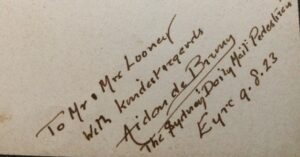 To Mr & Mrs Looney
With kindest regards
Aidan de Brune
The "Sydney Daily Mail" Pedestrian
Eyre 9.8.23